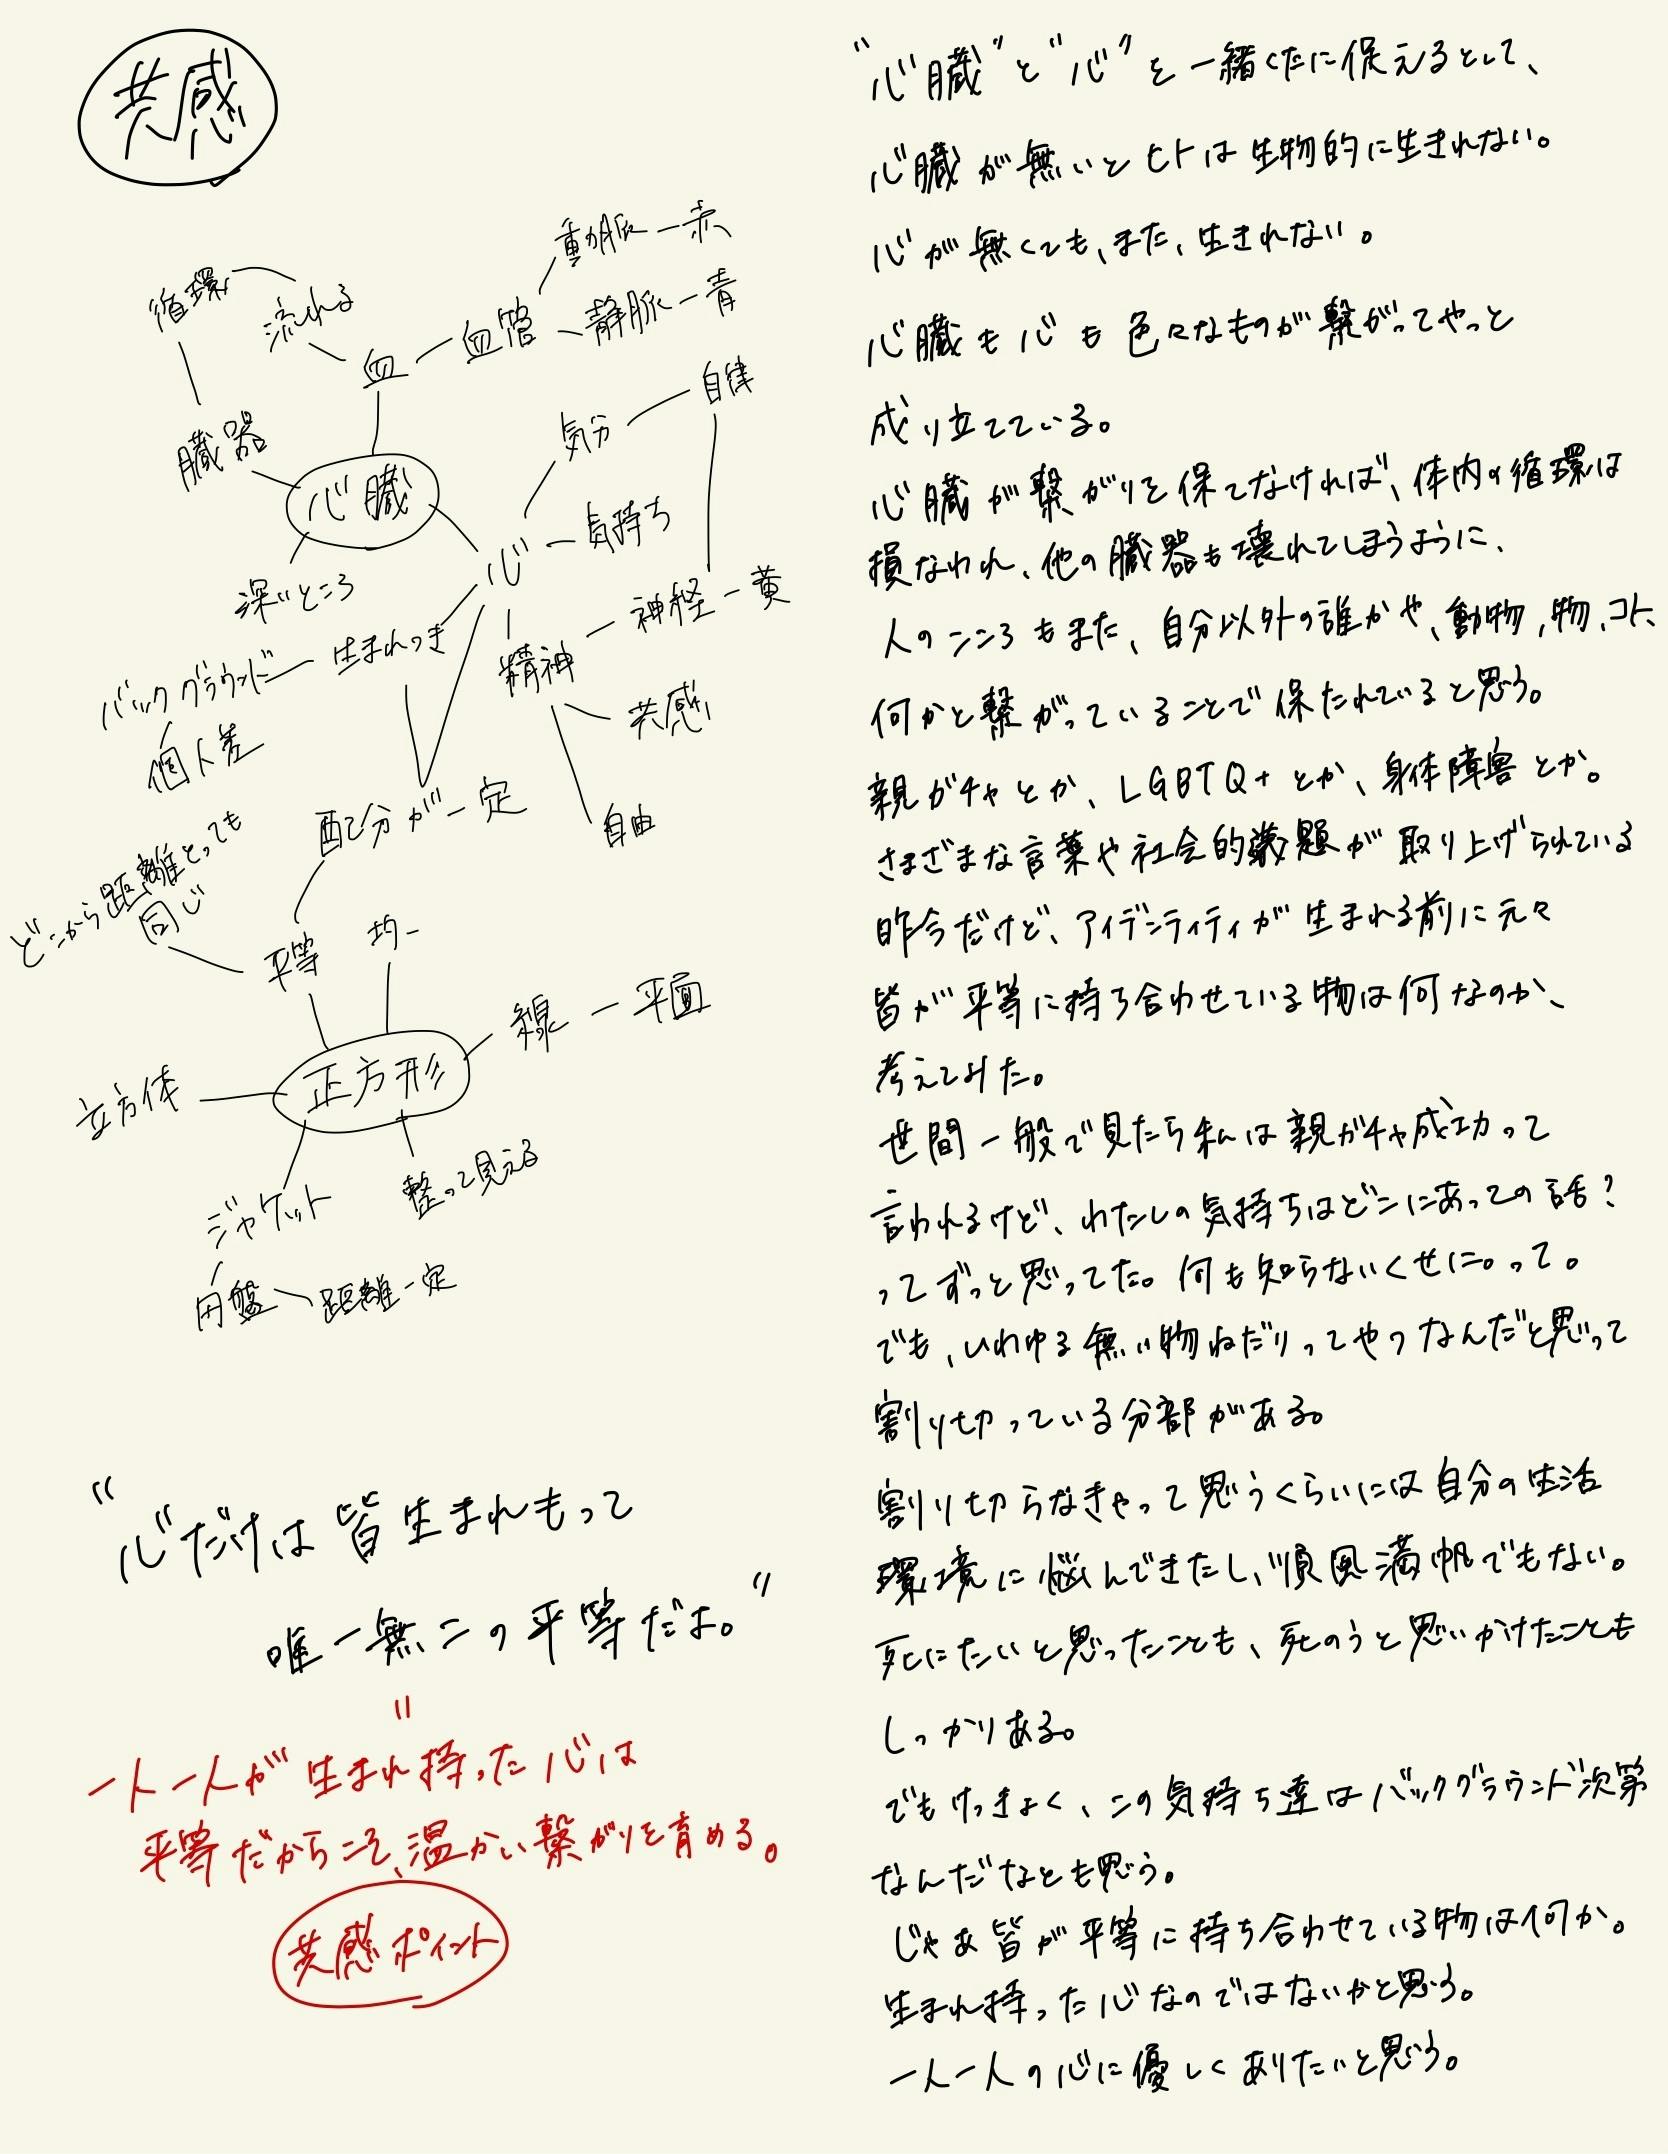 共感
動脈ー赤
循環
流れる
血管
静脈ー青
血
自律
気分
臓器
心臓
気持ち
心
深いところ
神経ー黄
生まれつき
精神
バックグラウンド
共感
個人差
配分が一定
自由
どこから距離とっても
同じ
均一
平等
線ー平面
正方形
立方体
整って見える
ジャケット
円盤
距離一定
"心だけは皆生まれもって
唯一無二の平等だよ。"
=
一人一人が生まれ持った心は
平等だからこそ、温かい繋がりを育める。
共感ポイント
"心臓"と"心"を一緒くたに保えるとして、
心臓が無いとヒトは生物的に生きれない。
心が無くても、また、生きれない。
心臓も心も色々なものが繋がってやっと
成り立てている。
心臓が繋がりを保てなければ、体内の循環は
損なわれ、他の臓器も壊れてしまうように、
人のこころもまた、自分以外の誰かや、動物,物,コト、
何かと繋がっていることで保たれていると思う。
親ガチャとか、LGBTQ+とか、身体障害とか。
さまざまな言葉や社会的議題が取り上げられている
昨今だけど、アイデンティティが生まれる前に元々
皆が平等に持ち合わせている物は何なのか、
考えてみた。
世間一般で見たら私は親ガチャ成功って
言われるけど、わたしの気持ちはどこにあっての話?
ってずっと思ってた。何も知らないくせに。って。
でも、いわゆる無い物ねだりってやつなんだと思って
割り切っている分部がある。
割り切らなきゃって思うくらいには自分の生活
環境に悩んできたし、順風満帆でもない。
死にたいと思ったことも、死のうと思いかけたことも
しっかりある。
でもけっきょく、この気持ち達はバックグラウンド次第
なんだなとも思う。
じゃあ皆が平等に持ち合わせている物は何か。
生まれ持った心なのではないかと思う。
一人一人の心に優しくありたいと思う。